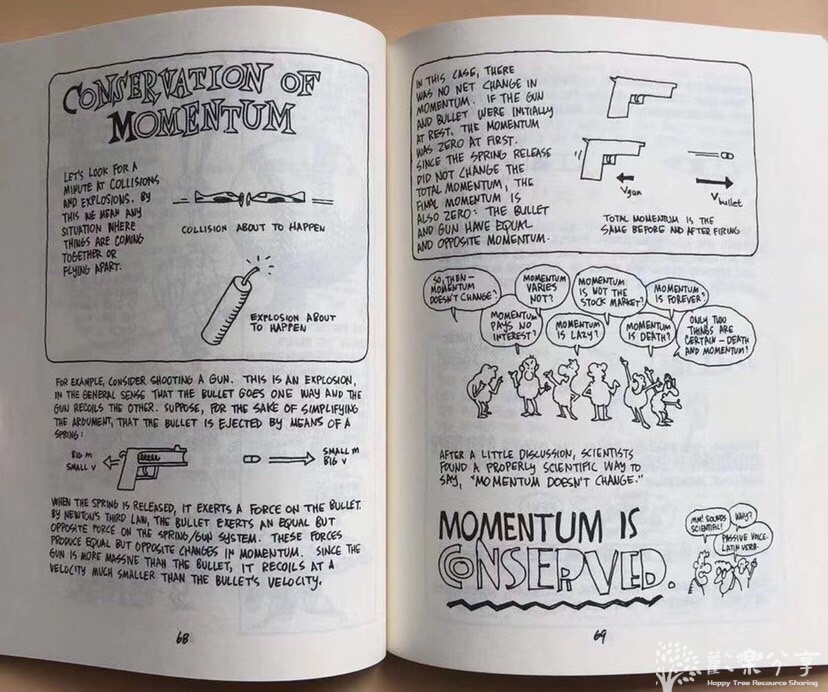 CONSERVATION OF
MOMENTUM
LET'S LOOK FOR A
MINUTE AT COLLISIONS
AND EXPLOSIONS. BY
THIS WE MEAN ANY
SITUATION WHERE
THINGS ARE COMING
TOGETHER OR
FLYING APART.
COLLISION ABOUT TO HAPPEN
EXPLOSION ABOUT
TO HAPPEN
FOR EXAMPLE, CONSIDER SHOOTING A GUN. THIS IS AN EXPLOSION,
IN THE GENERAL SENSE THAT THE BULLET GOES ONE WAY AND THE
GUN RECOILS THE OTHER. SUPPOSE, FOR THE SAKE OF SIMPLIFYING
THE ARGUMENT, THAT THE BULLET IS EJECTED BY MEANS OF A
SPRING:
BIG M
SMALL V
SMALL M
BIG V
WHEN THE SPRING IS RELEASED, IT EXERTS A FORCE ON THE BULLET.
BY NEWTON'S THIRD LAW, THE BULLET EXERTS AN EQUAL BUT
OPPOSITE FORCE ON THE SPRING/GUN SYSTEM. THESE FORCES
PRODUCE EQUAL BUT OPPOSITE CHANGES IN MOMENTUM. SINCE THE
GUN IS MORE MASSIVE THAN THE BULLET, IT RECOILS AT A
VELOCITY MUCH SMALLER THAN THE BULLET'S VELOCITY.
68
IN THIS CASE, THERE
WAS NO NET CHANGE IN
MOMENTUM. IF THE GUN
AND BULLET WERE INITIALLY
AT REST, THE MOMENTUM
WAS ZERO AT FIRST.
SINCE THE SPRING RELEASE
DID NOT CHANGE THE
TOTAL MOMENTUM, THE
FINAL MOMENTUM IS
ALSO ZERO: THE BULLET
AND GUN HAVE EQUAL
AND OPPOSITE MOMENTUM.
Vgun
Vbullet
TOTAL MOMENTUM IS THE
SAME BEFORE AND AFTER FIRING
SO, THEN—
MOMENTUM
DOESN'T CHANGE?
MOMENTUM
PAYS NO
INTEREST?
MOMENTUM
VARIES
NOT?
MOMENTUM
IS LAZY?
MOMENTUM
IS NOT THE
STOCK MARKET?
MOMENTUM
IS DEATH?
MOMENTUM
IS FOREVER?
ONLY TWO
THINGS ARE
CERTAIN—DEATH
AND MOMENTUM?
AFTER A LITTLE DISCUSSION, SCIENTISTS
FOUND A PROPERLY SCIENTIFIC WAY TO
SAY, "MOMENTUM DOESN'T CHANGE."
MOMENTUM IS
CONSERVED.
MM! SOUNDS
SCIENTIFIC!
WHY?
PASSIVE VOICE.
LATIN VERB.
69
歡樂分享
Happy Tree Resource Sharing